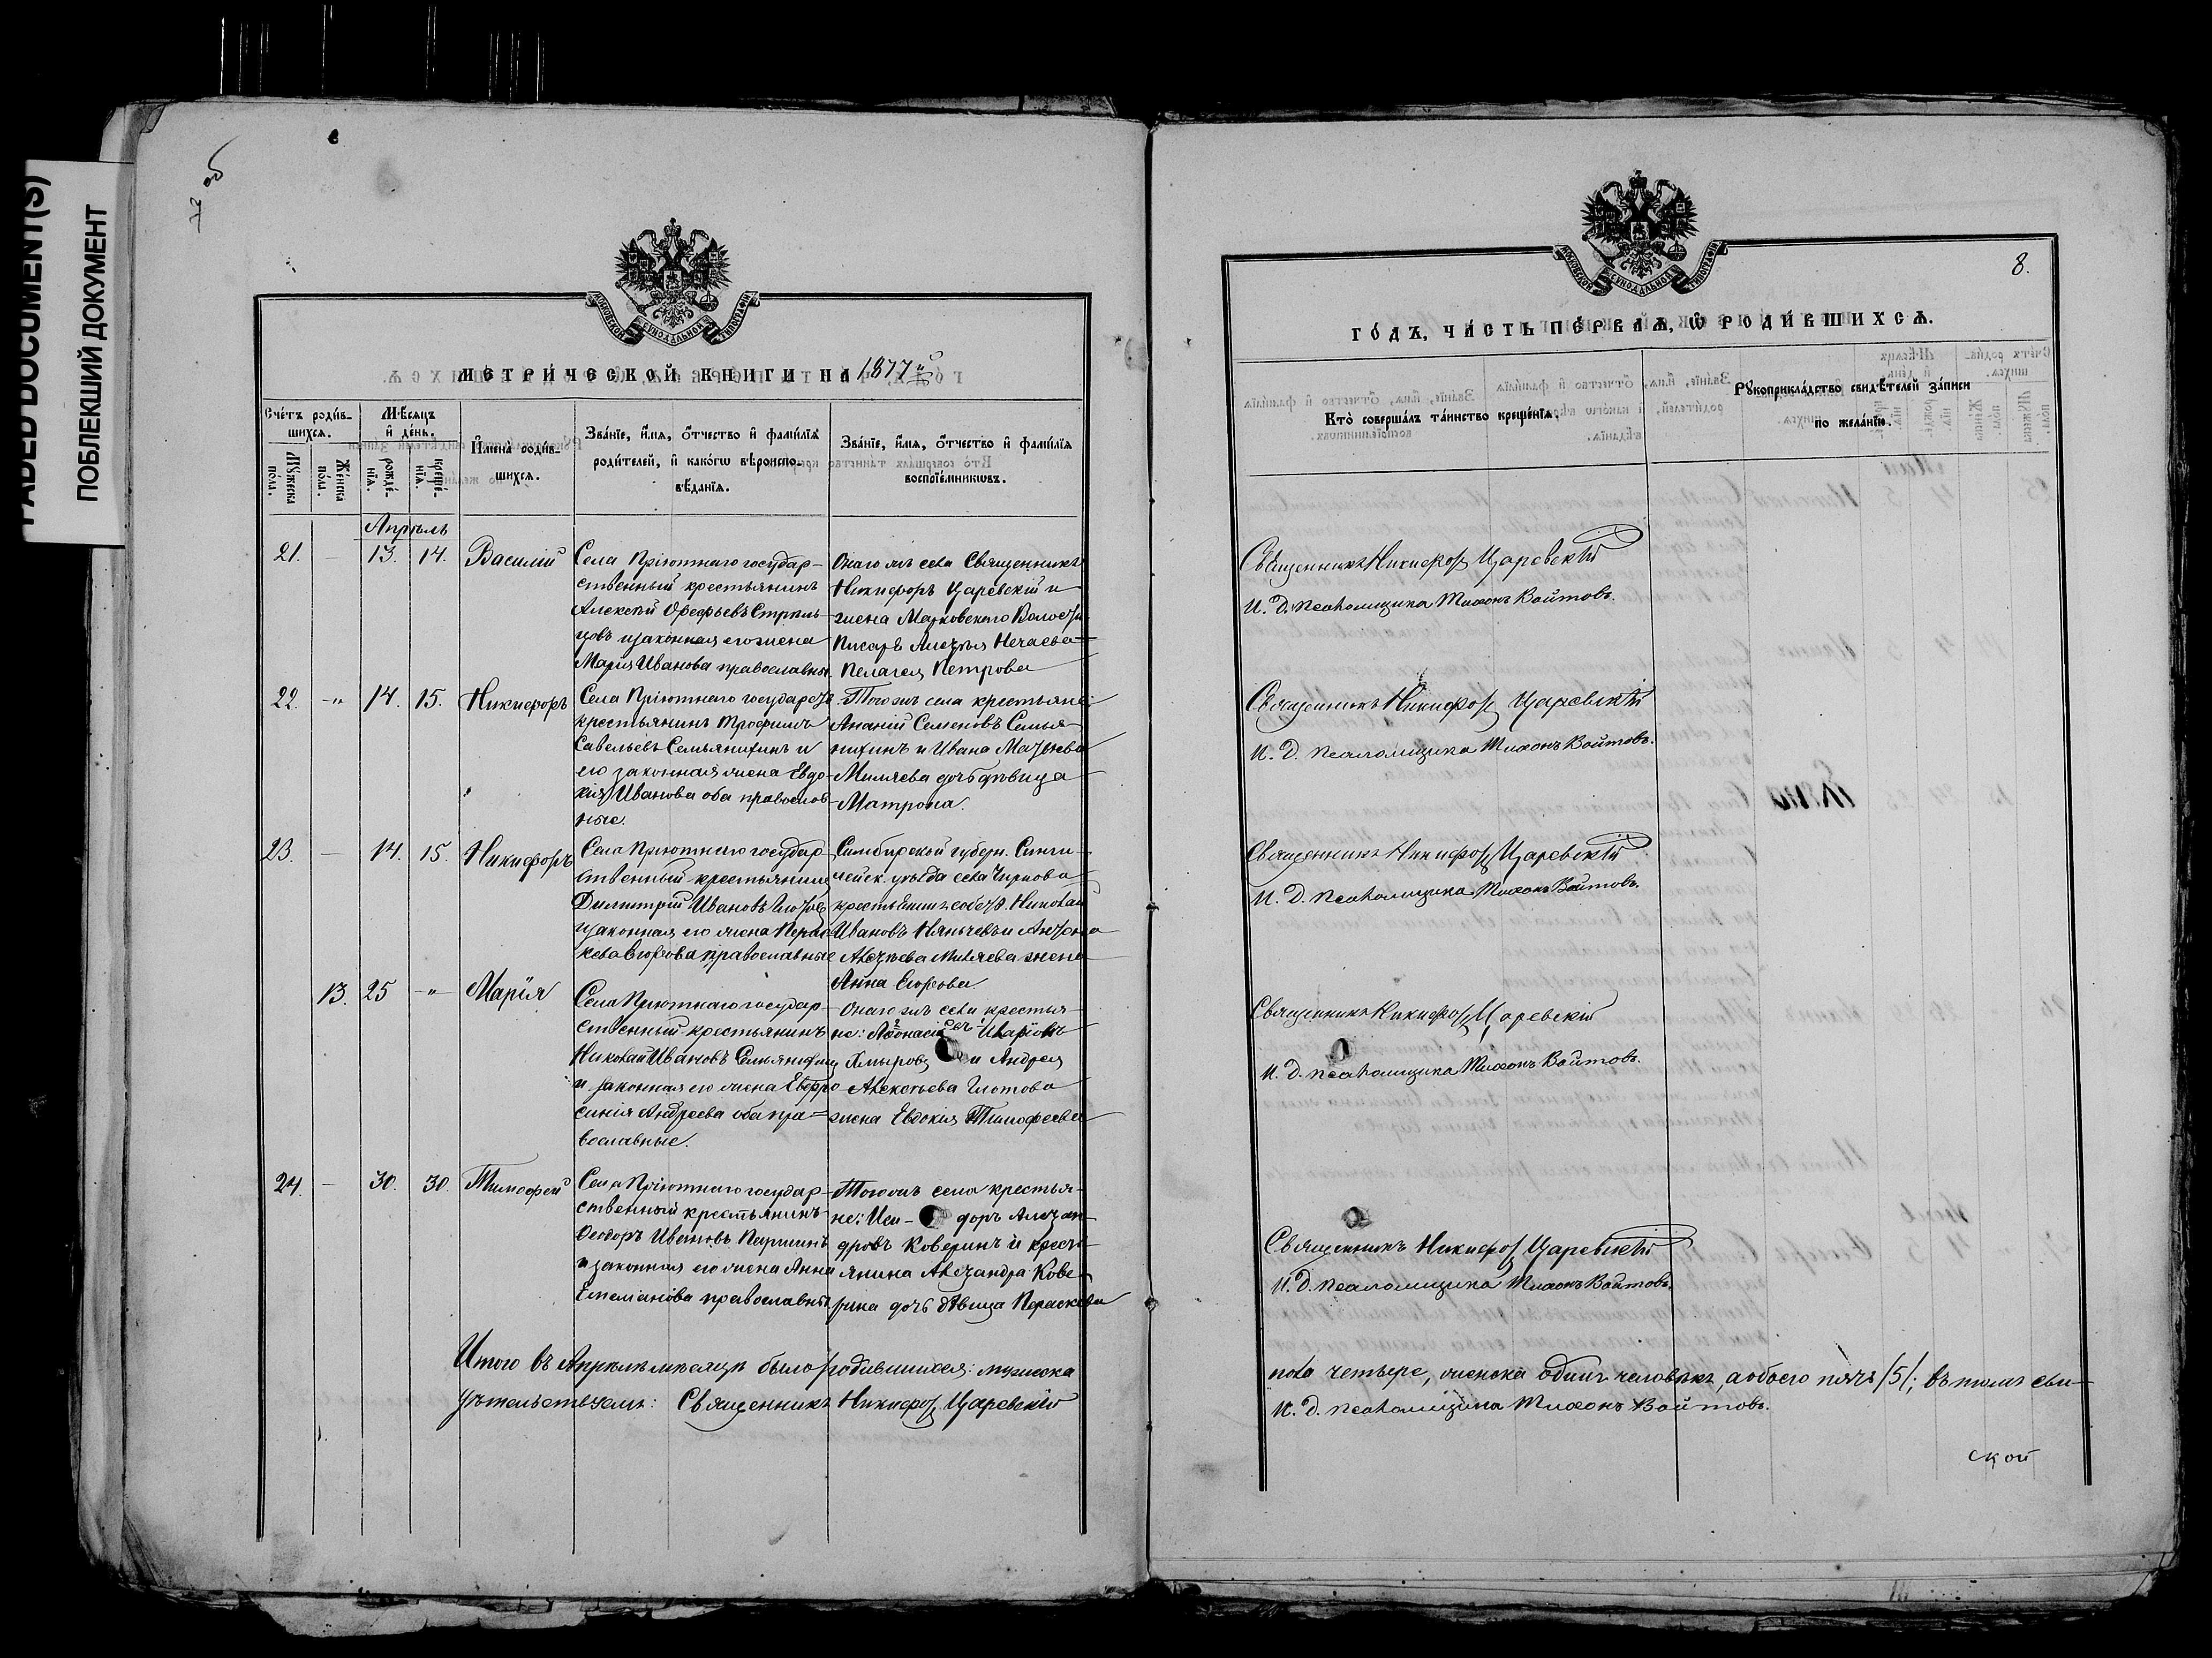 FADED DOCUMENT(S)
ПОБЛЕКШИЙ ДОКУМЕНТ
7 об
МОСКОВСКОЙ СѴНОДАЛЬНОЙ ТИПОГРАФІИ
МЕТРИЧЕСКОЙ КНИГИ НА 1877й
Счетъ родившихся.
Мужеска пола.
Женска пола.
Мѣсяцъ и день.
рожденія.
крещенія.
Имена родившихся.
Званіе, имя, отчество и фамилія родителей, и какого вѣроисповѣданія.
Званіе, имя, отчество и фамилія воспріемниковъ.
Апрѣль
21. — 13. 14. Василій
Села Пріютнаго государ-
ственный крестьянинъ
Алексѣй Орефьевъ Стрѣль-
цовъ и законная его жена
Марія Иванова православны
Онаго же села Священникъ
Никифоръ Царевскій и
жена Марковскаго Волост.
Писаря Алексѣя Нечаева
Пелагея Петрова
22. -"- 14. 15. Никифоръ
Села Пріютнаго государст.
крестьянинъ Трофимъ
Савельевъ Семьянихинъ и
его законная жена Евдо-
кія Иванова оба православ-
ные.
Того же села крестьяне:
Ананій Семеновъ Семья-
нихинъ и Ивана Матвѣева
Миляева дочь дѣвица
Матрона.
23. — 14. 15. Никифоръ
Села Пріютнаго государ-
ственный крестьянинъ
Димитрій Ивановъ
и законная его жена
православные
Симбирской губерн. Синги-
лейск. уѣзда села
крестьянинъ собств. Николай
Ивановъ и Антона
Алексѣева Миляева жена
Анна Егорова
13. 25 -"- Марія
Села Пріютнаго государ-
ственный крестьянинъ
Николай Ивановъ Семьянихинъ
и законная его жена Евфро-
синія Андреева оба пра=
вославные.
Онаго же села крестья-
не: Ивановъ
Хмыровъ и Андрея
Алексѣева Глотова
жена Евдокія Тимофеева
24. — 30. 30. Тимофей
Села Пріютнаго государ-
ственный крестьянинъ
Ѳеодоръ Ивановъ Паршинъ
и законная его жена Анна
Емеліанова православны
Того же села крестья-
не: Иси- доръ Алексан-
дровъ Коверинъ и кресть-
янина Александра Кове-
рина дочь дѣвица Параскева
Итого въ Апрѣлѣ мѣсяцѣ было родившихся: мужеска
дѣтельствуемъ: Священникъ Никифоръ Царевскій
8.
МОСКОВСКОЙ СѴНОДАЛЬНОЙ ТИПОГРАФІИ
ГОДЪ, ЧАСТЬ ПЕРВАЯ, Ѡ РОДИВШИХСЯ.
Кто совершалъ таинство крещенія.
Рукоприкладство свидѣтелей записи по желанію.
Священникъ Никифоръ Царевскій
И. д. псаломщика Тихонъ Войтовъ.
Священникъ Никифоръ Царевскій
И. д. псаломщика Тихонъ Войтовъ.
Священникъ Никифоръ Царевскій
И. д. псаломщика Тихонъ Войтовъ.
Священникъ Никифоръ Царевскій
И. д. псаломщика Тихонъ Войтовъ.
Священникъ Никифоръ Царевскій
И. д. псаломщика Тихонъ Войтовъ.
пола четыре, женска одинъ человѣкъ, а обоего пять /5/; въ томъ сви-
И. д. псаломщика Тихонъ Войтовъ.
ской